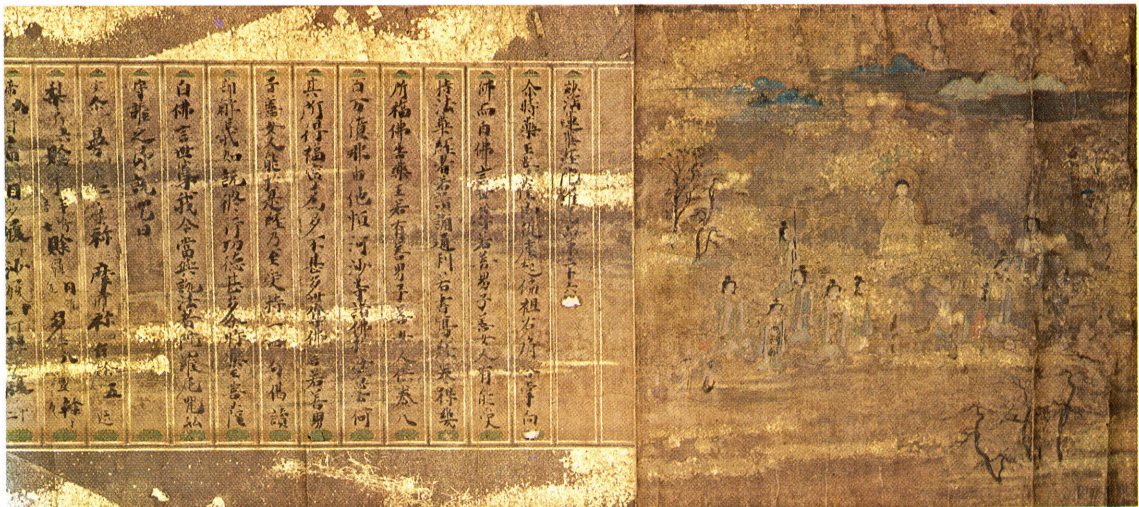 妙法蓮華經陀羅尼品第二十六
尒時藥王菩薩即從座起偏袒右肩合掌向
佛而白佛言世尊若善男子善女人有能受
持法華經者若讀誦通利若書寫經卷得幾
所福佛告藥王若有善男子善女人供養八
百万億那由他恒河沙等諸佛於汝意云何
其所得福寧為多不甚多世尊佛言若善男
子善女人能於是經乃至受持一四句偈讀
誦解義如說修行功德甚多尒時藥王菩薩
白佛言世尊我今當與說法者陀羅尼呪以
守護之即說呪曰